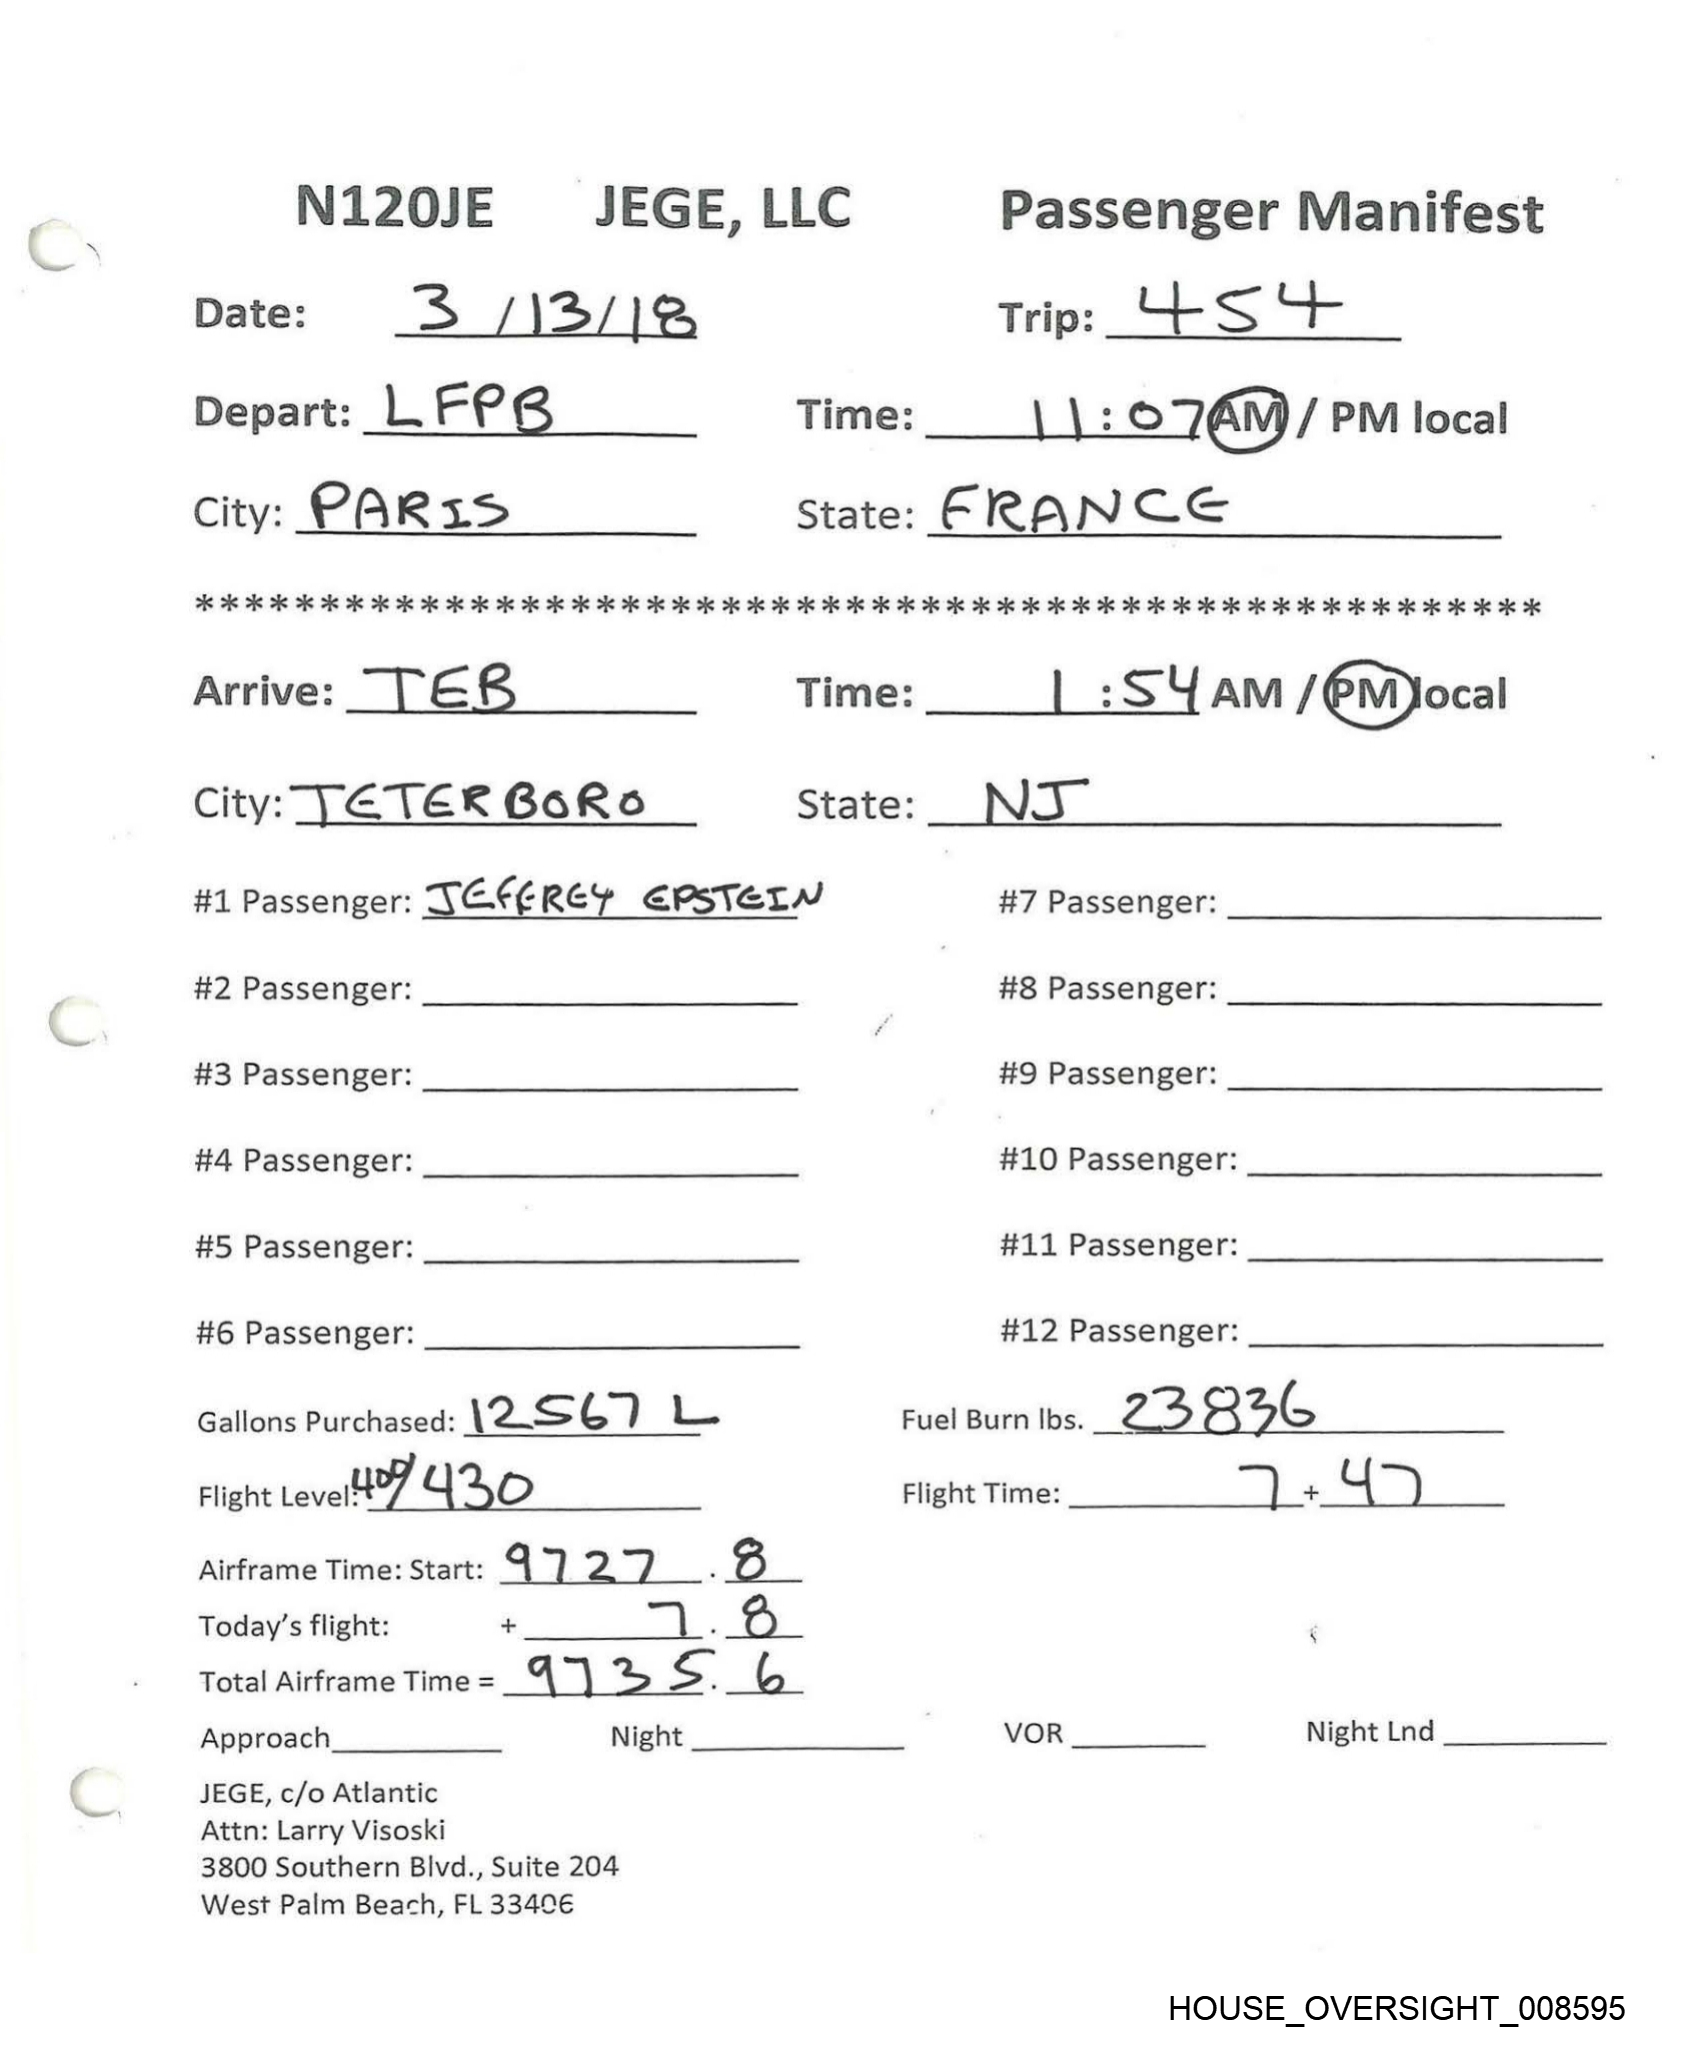 N120JE JEGE, LLC Passenger Manifest
Date: 3/13/18 Trip: 454
Depart: LFPB Time: 11:07 AM / PM local
City: PARIS State: FRANCE
******************************************************
Arrive: TEB Time: 1:54 AM / PM local
City: TETERBORO State: NJ
#1 Passenger: JEFFREY EPSTEIN #7 Passenger:
#2 Passenger: #8 Passenger:
#3 Passenger: #9 Passenger:
#4 Passenger: #10 Passenger:
#5 Passenger: #11 Passenger:
#6 Passenger: #12 Passenger:
Gallons Purchased: 12567 L Fuel Burn lbs. 23836
Flight Level: 400/430 Flight Time: 7 + 47
Airframe Time: Start: 9727.8
Today's flight: + 7.8
Total Airframe Time = 9735.6
Approach Night VOR Night Lnd
JEGE, c/o Atlantic
Attn: Larry Visoski
3800 Southern Blvd., Suite 204
West Palm Beach, FL 33406
HOUSE_OVERSIGHT_008595